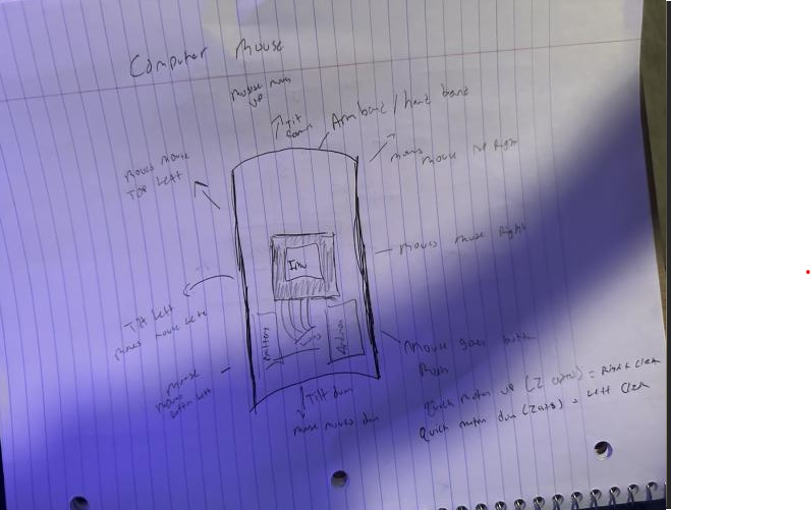 Computer Mouse
mouse moves
up
Tilt
Arm band / hand band
moves
mouse top Right
moves mouse
Top Left
moves mouse Right
Imu
Tilt Left
moves mouse Left
Battery
Arduino
mouse goes bottom
mouse
moves
bottom left
Tilt down
mouse moves down
Quick motion up (Z axis) = Right Click
Quick motion down (Z axis) = Left Click